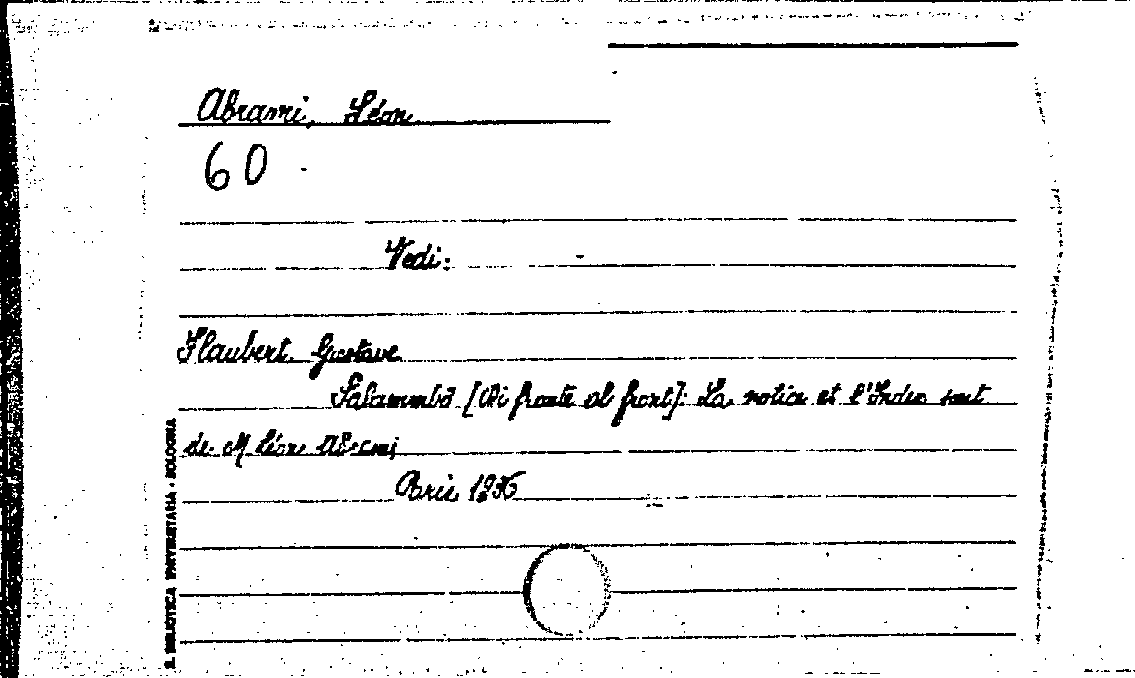 Abrami, Léon
60
Vedi:
Flaubert Gustave
Salammbô [Di fronte al front]: La notice et l'Index sont
de M Léon Abrami
Paris 1936
R. BIBLIOTECA UNIVERSITARIA - BOLOGNA